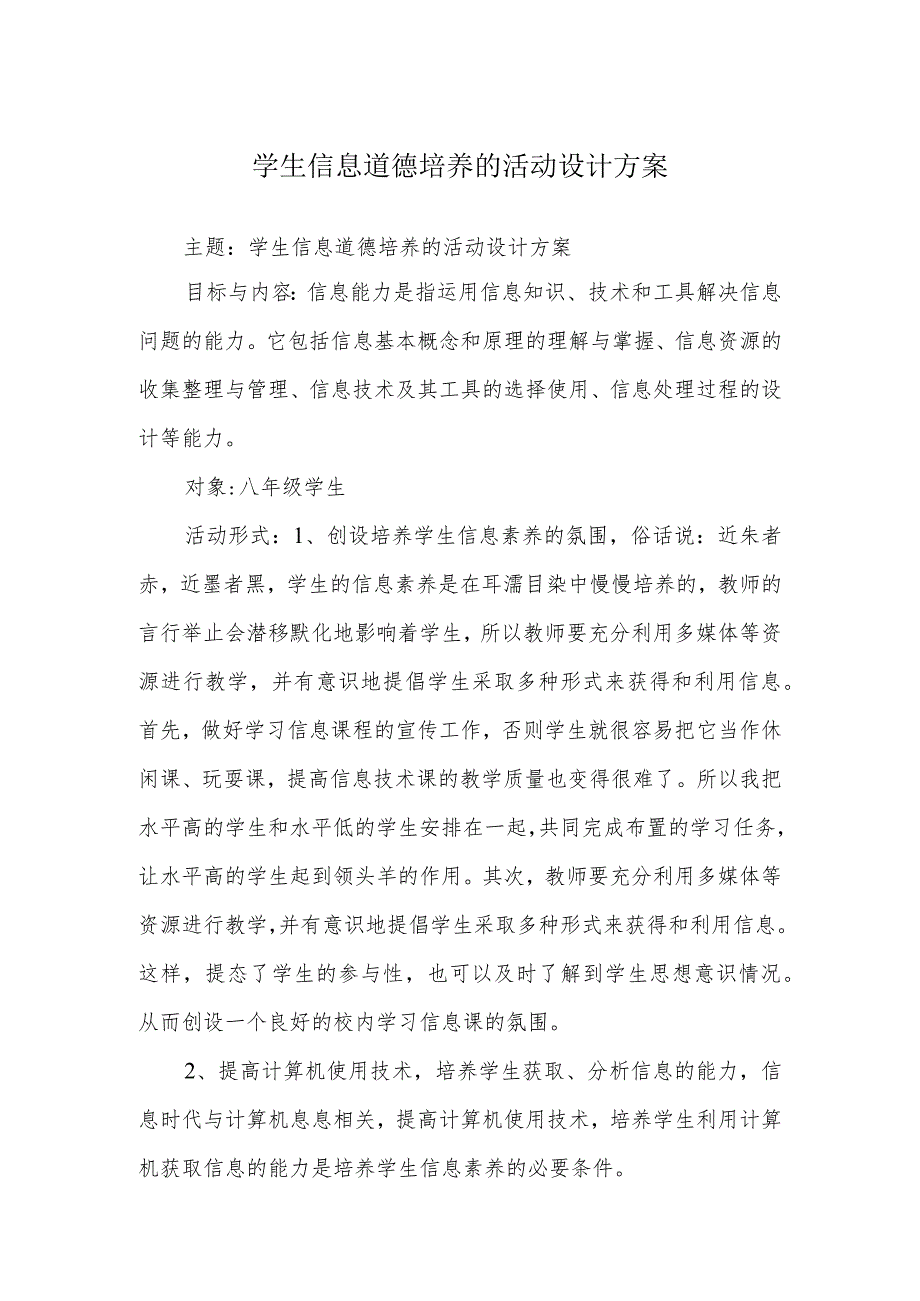 学生信息道德培养的活动设计方案
主题：学生信息道德培养的活动设计方案
目标与内容：信息能力是指运用信息知识、技术和工具解决信息
问题的能力。它包括信息基本概念和原理的理解与掌握、信息资源的
收集整理与管理、信息技术及其工具的选择使用、信息处理过程的设
计等能力。
对象：八年级学生
活动形式：1、创设培养学生信息素养的氛围，俗话说：近朱者
赤，近墨者黑，学生的信息素养是在耳濡目染中慢慢培养的，教师的
言行举止会潜移默化地影响着学生，所以教师要充分利用多媒体等资
源进行教学，并有意识地提倡学生采取多种形式来获得和利用信息。
首先，做好学习信息课程的宣传工作，否则学生就很容易把它当作休
闲课、玩耍课，提高信息技术课的教学质量也变得很难了。所以我把
水平高的学生和水平低的学生安排在一起，共同完成布置的学习任务，
让水平高的学生起到领头羊的作用。其次，教师要充分利用多媒体等
资源进行教学，并有意识地提倡学生采取多种形式来获得和利用信息。
这样，提态了学生的参与性，也可以及时了解到学生思想意识情况。
从而创设一个良好的校内学习信息课的氛围。
2、提高计算机使用技术，培养学生获取、分析信息的能力，信
息时代与计算机息息相关，提高计算机使用技术，培养学生利用计算
机获取信息的能力是培养学生信息素养的必要条件。